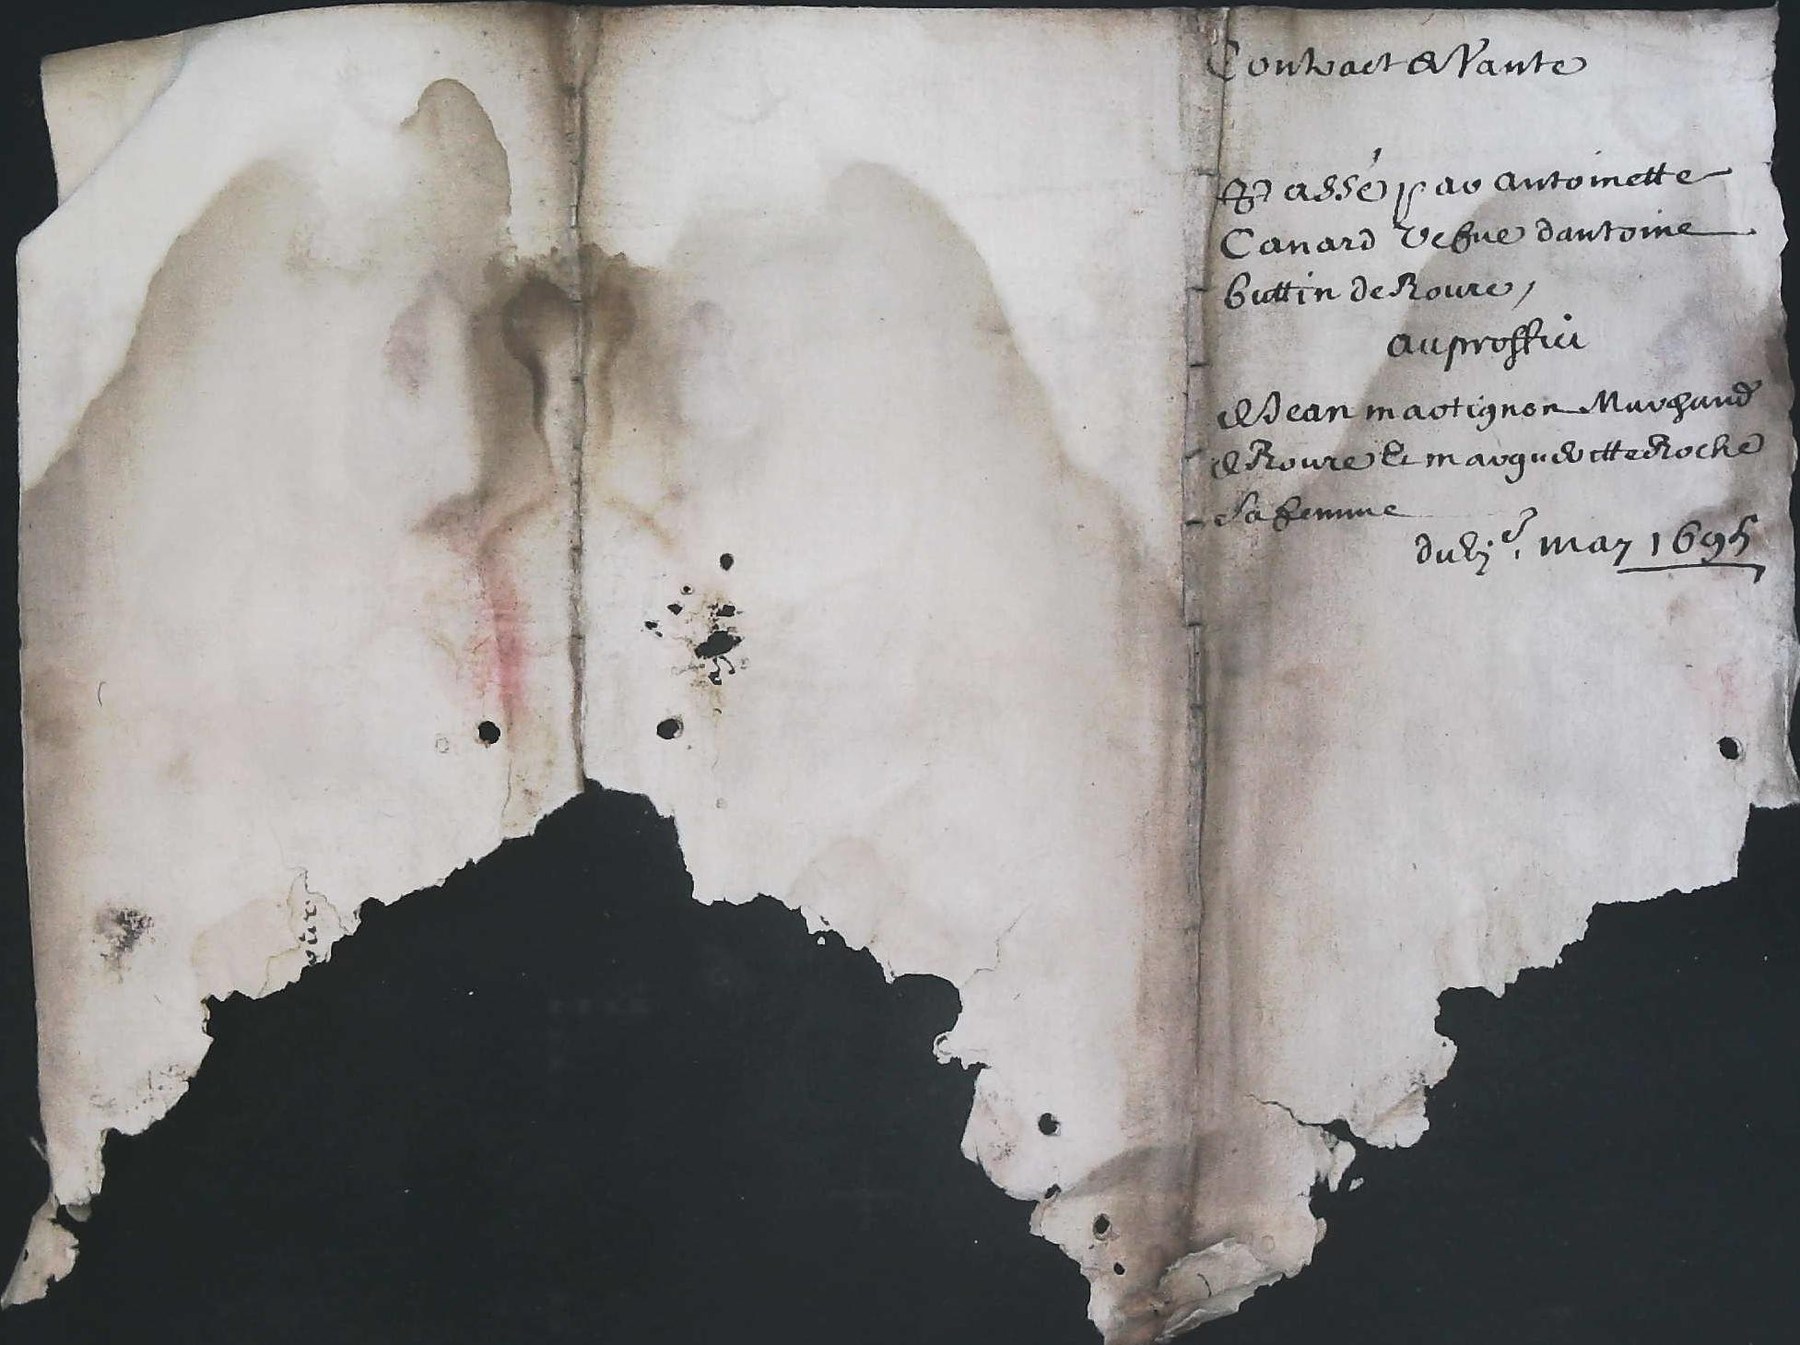 Contract de Vante
Passé par Antoinette
Canard vefve dantoine
buttin de Roure,
au proffict
de Jean martignon Marchand
de Roure & margueritte Roche
sa femme
du may 1695